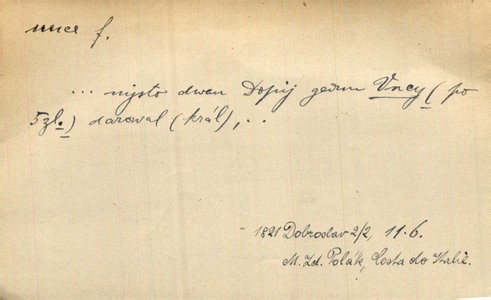 unce f.
... mjsto dwau Dopij gednu Vncy (po
5 zl.) darowal (král), ..
1821 Dobroslav 2/2, 11.6.
M. Zd. Polák, Cesta do Italie.